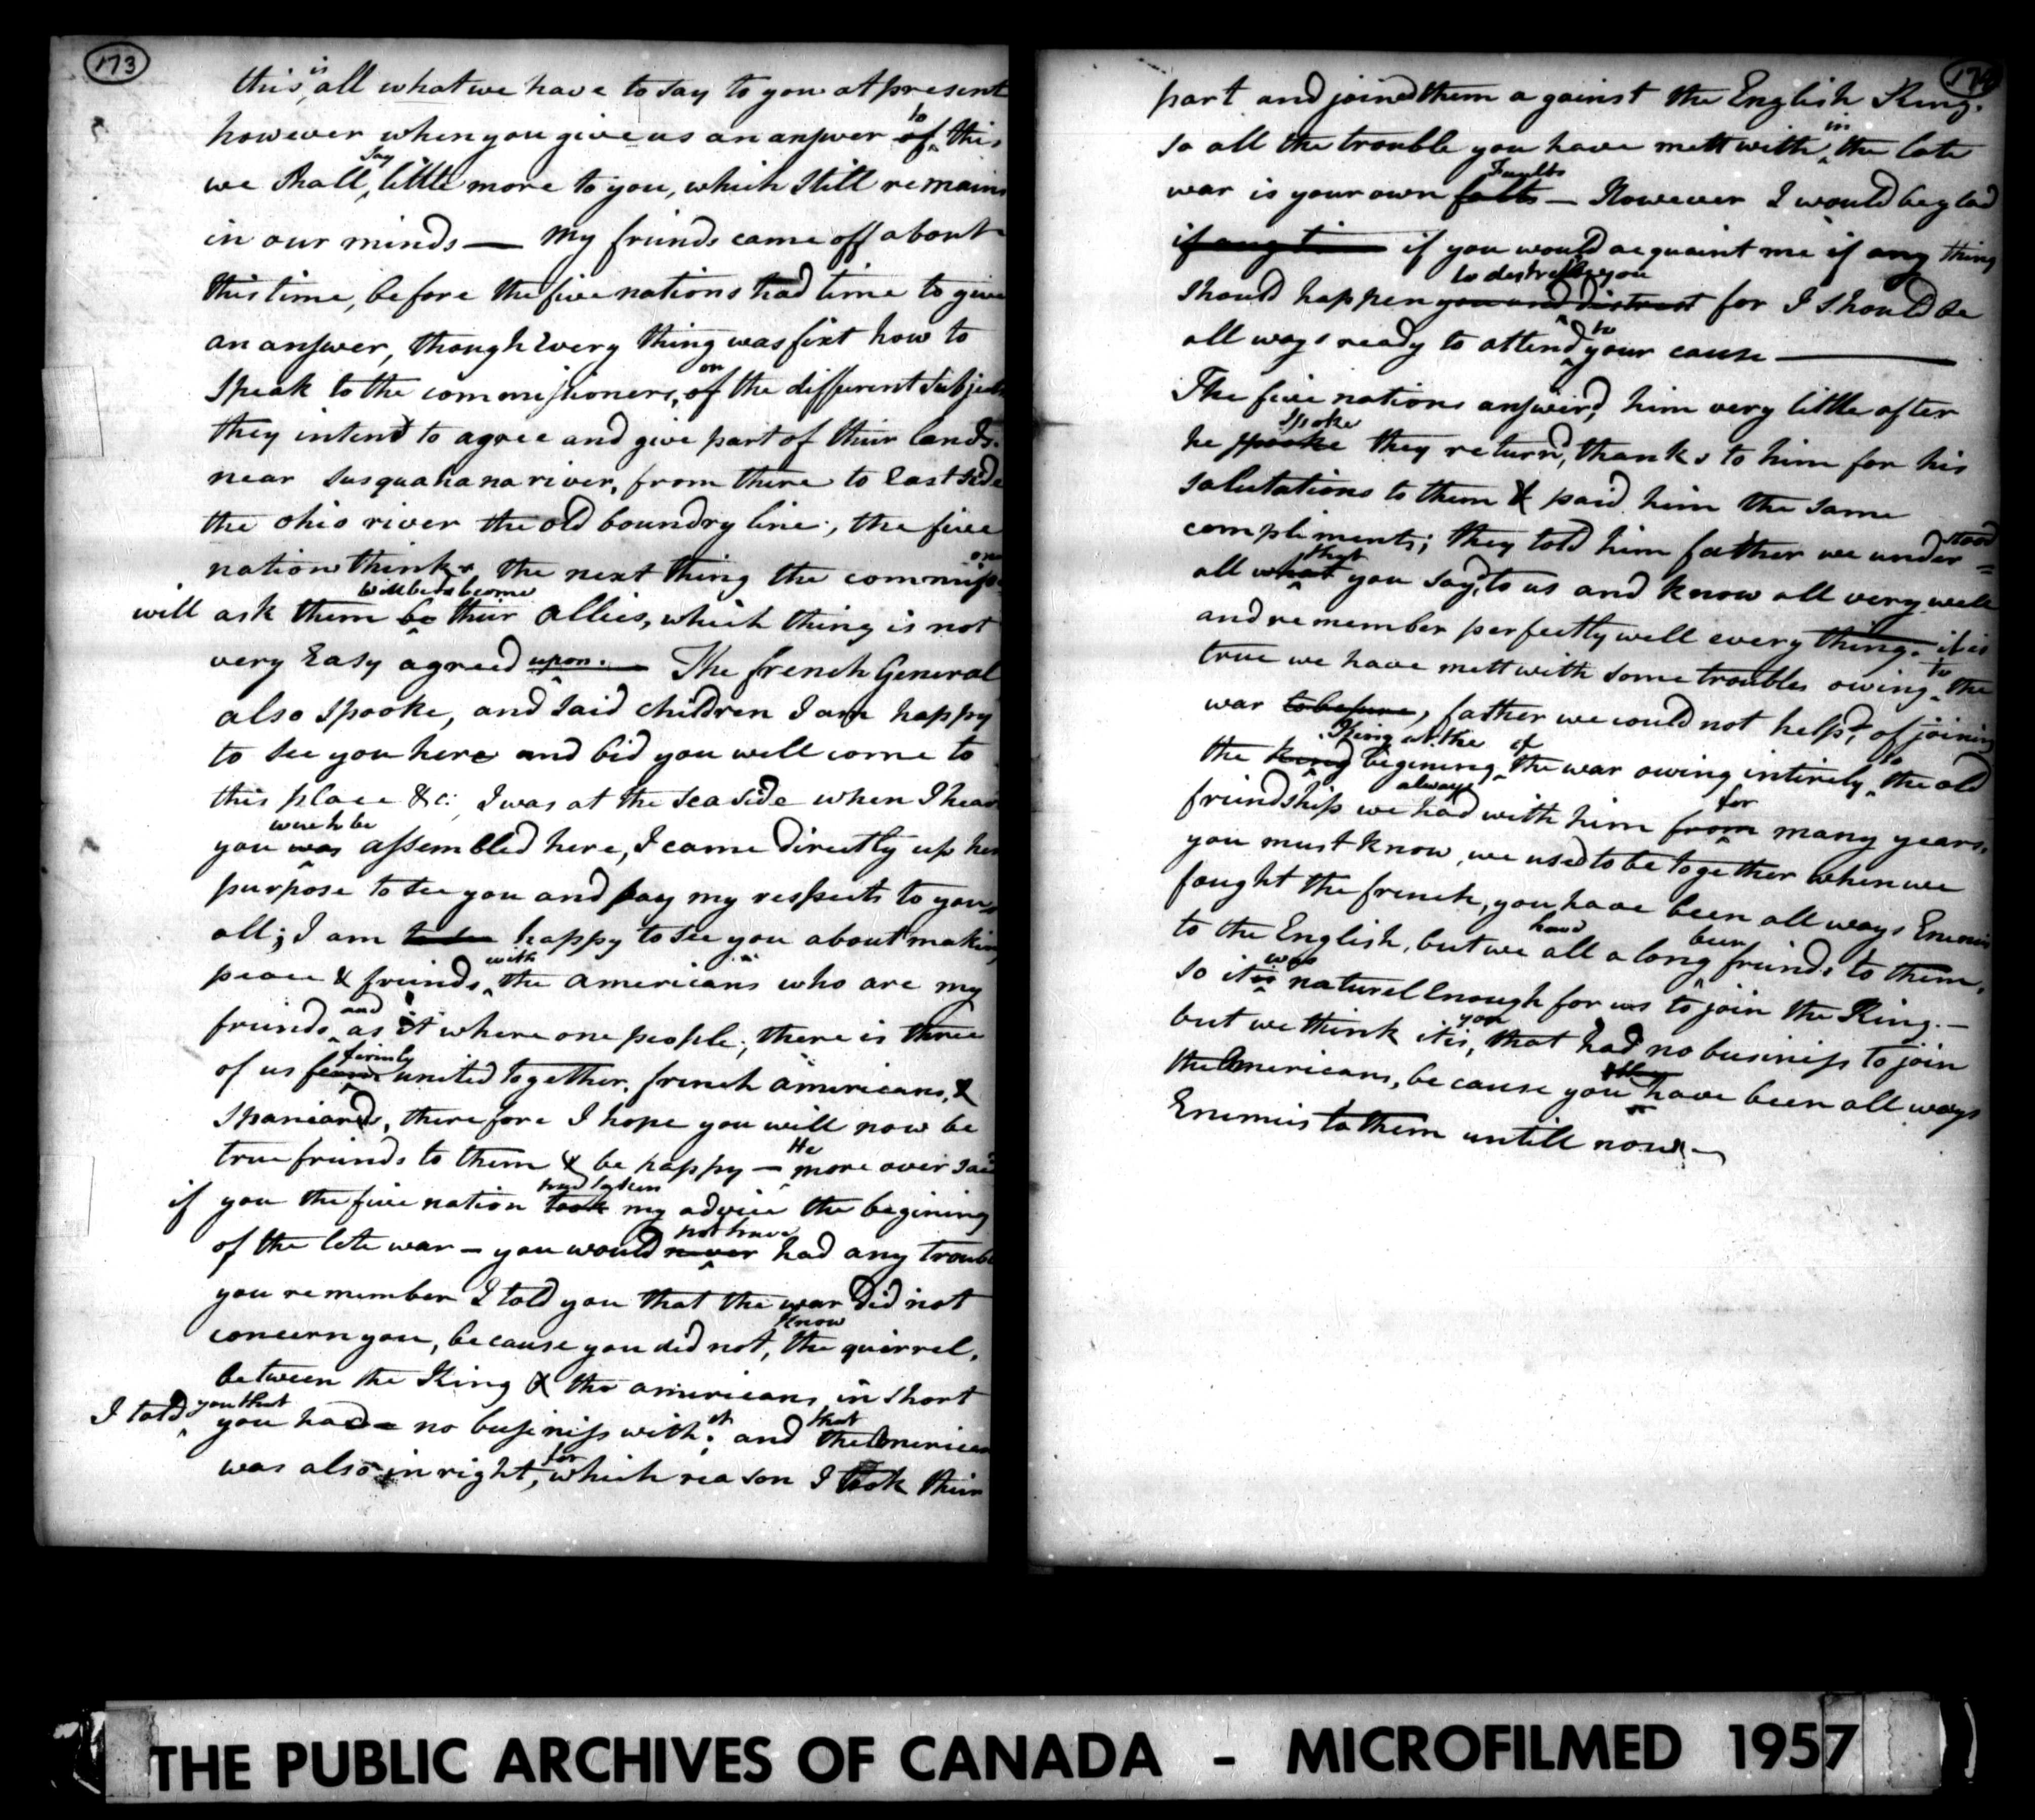 173
this is all what we have to say to you at present
however when you give us an answer of to this
we shall say little more to you, which still remains
in our minds — my friends came off about
this time, before the five nations had time to give
an answer, though every thing was fixt how to
speak to the commissioners, of on the different subjects
they intend to agree and give part of their lands.
near susquahana river, from there to East side
the ohio river the old boundry line; the five
nations think the next thing the commissoners
will ask them be will be to become their allies, which thing is not
very Easy agreed upon. — The french General
also spooke, and said children I am happy
to see you here and bid you well come to
this place &c; I was at the sea side when I hear
you was were to be assembled here, I came directly up here
purpose to see you and pay my respects to you
all; I am happy to see you about making
peace & friends with the americans who are my
friends and as it where one people; there is three
of us firmly united together. french americans, &
spaniards, therefore I hope you will now be
true friends to them & be happy — He more over said
if you the five nation took had taken my advice the begining
of the late war — you would never not have had any trouble
you remember I told you that the war did not
concern you, because you did not, know the quirrel,
between the King & the americans in short
I told you that you had no business with it. and that the American
was also in right, for which reason I took their
174
part and joined them against the English King.
so all the trouble you have mett with in the late
war is your own falts Faults — However I would be glad
if any ti if you would acquaint me if any thing
should happen you and distrest to distress you for I should be
all ways ready to attend to your cause —
The five nations answeird, him very little after
he spooke spoke they return'd, thanks to him for his
salutations to them & paid him the same
compliments; they told him father we under=stood
all what that you say'd, to us and know all very well
and remember perfectly well every thing. it is
true we have mett with some troubles owing to the
war to be sure, father we could not help'd, of joining
the king King at the begening of the war owing intirely to the old
friendship we had always with him from for many years.
you must know, we used to be together when we
fought the french, you have been all ways Enemies
to the English, but we have all along been friends to them,
so it is was naturel enough for us to join the King. —
but we think it is, you that had no business to join
the Americans, because you have been all ways
Enemies to them untill now —
THE PUBLIC ARCHIVES OF CANADA - MICROFILMED 1957